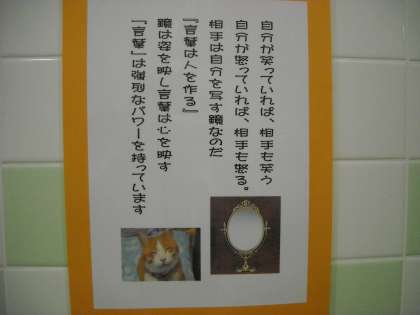 自分が笑っていれば、相手も笑う
自分が怒っていれば、相手も怒る。
相手は自分を写す鏡なのだ
『言葉は人を作る』
鏡は姿を映し言葉は心を映す
「言葉」は強烈なパワーを持っています